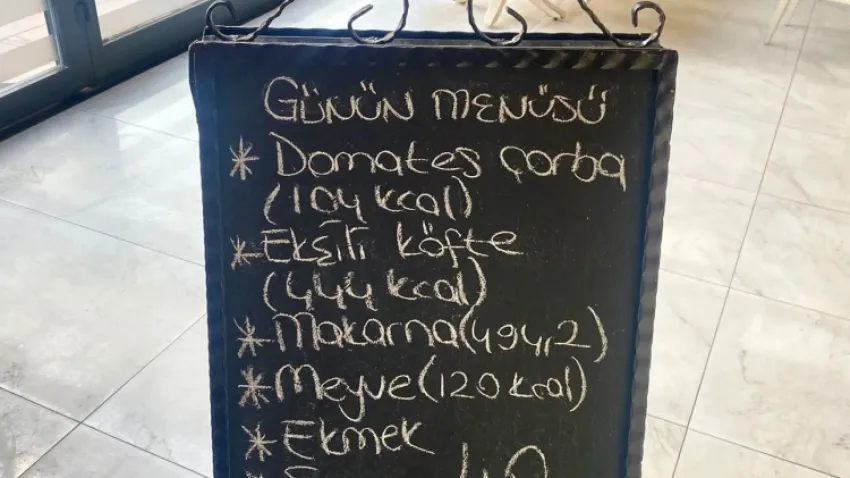 GÜNÜN MENÜSÜ
* Domates çorba
(104 kcal)
* Ekşili köfte
(444 kcal)
* Makarna(494,2)
* Meyve(120 kcal)
* Ekmek